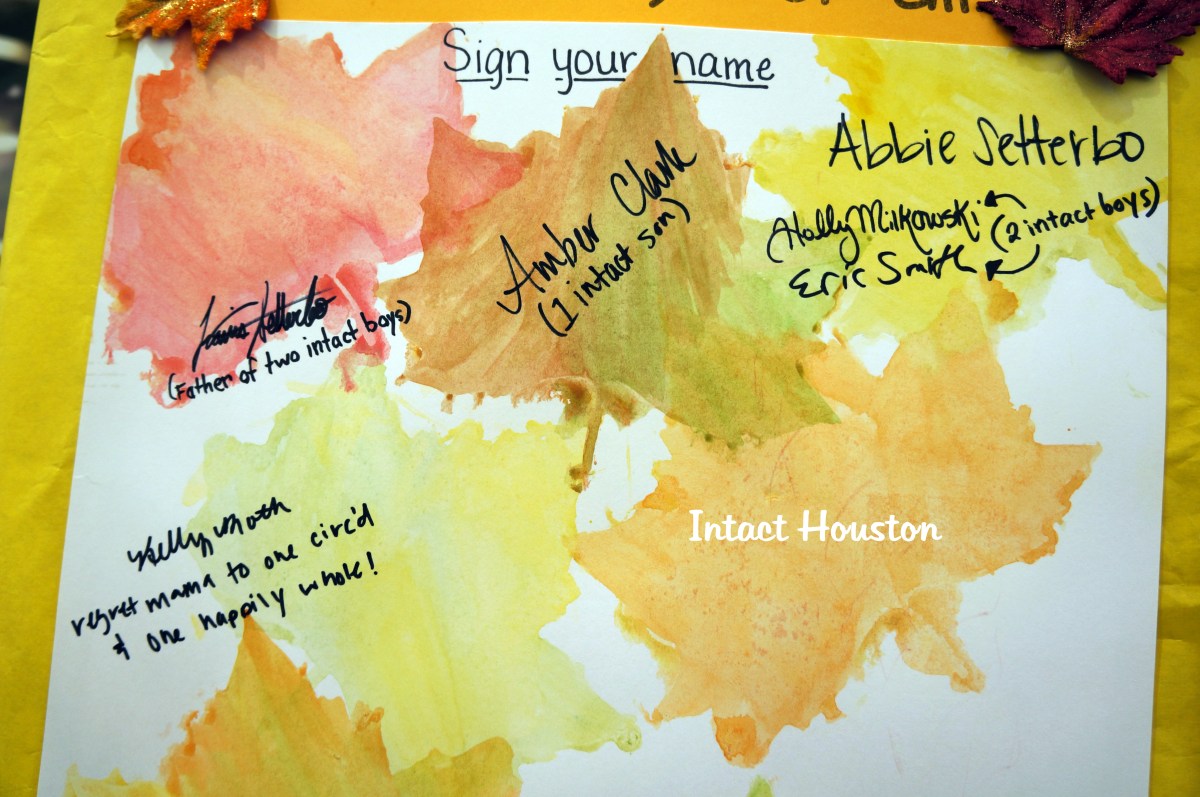 Sign your name
Abbie Setterbo
Amber Clark
(1 intact son)
Holly Milkowski
(2 intact boys)
Eric Smith
Setterbo
(Father of two intact boys)
Intact Houston
Kelly
regret mama to one circ'd
& one happily whole!